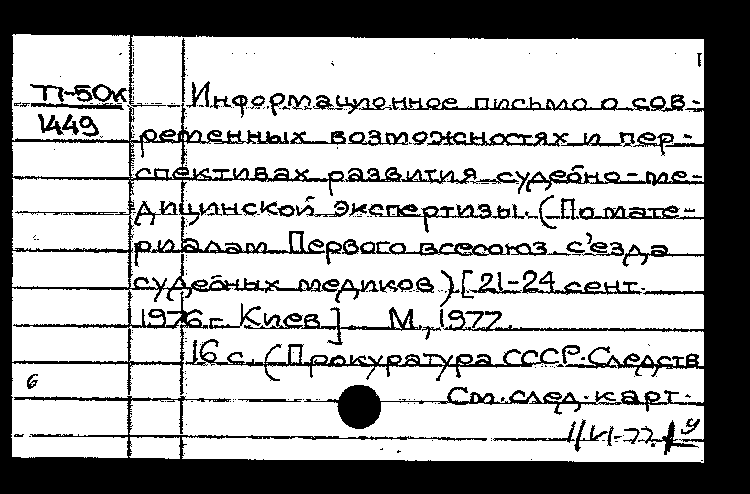 П-50к
1449
Информационное письмо о сов-
ременных возможностях и пер-
спективах развития судебно-ме-
дицинской экспертизы. (По мате-
риалам Первого всесоюз. с'езда
судебных медиков) [21-24 сент.
1976 г. Киев]. М., 1977.
16 с. (Прокуратура СССР. Следств
См. след. карт.
6